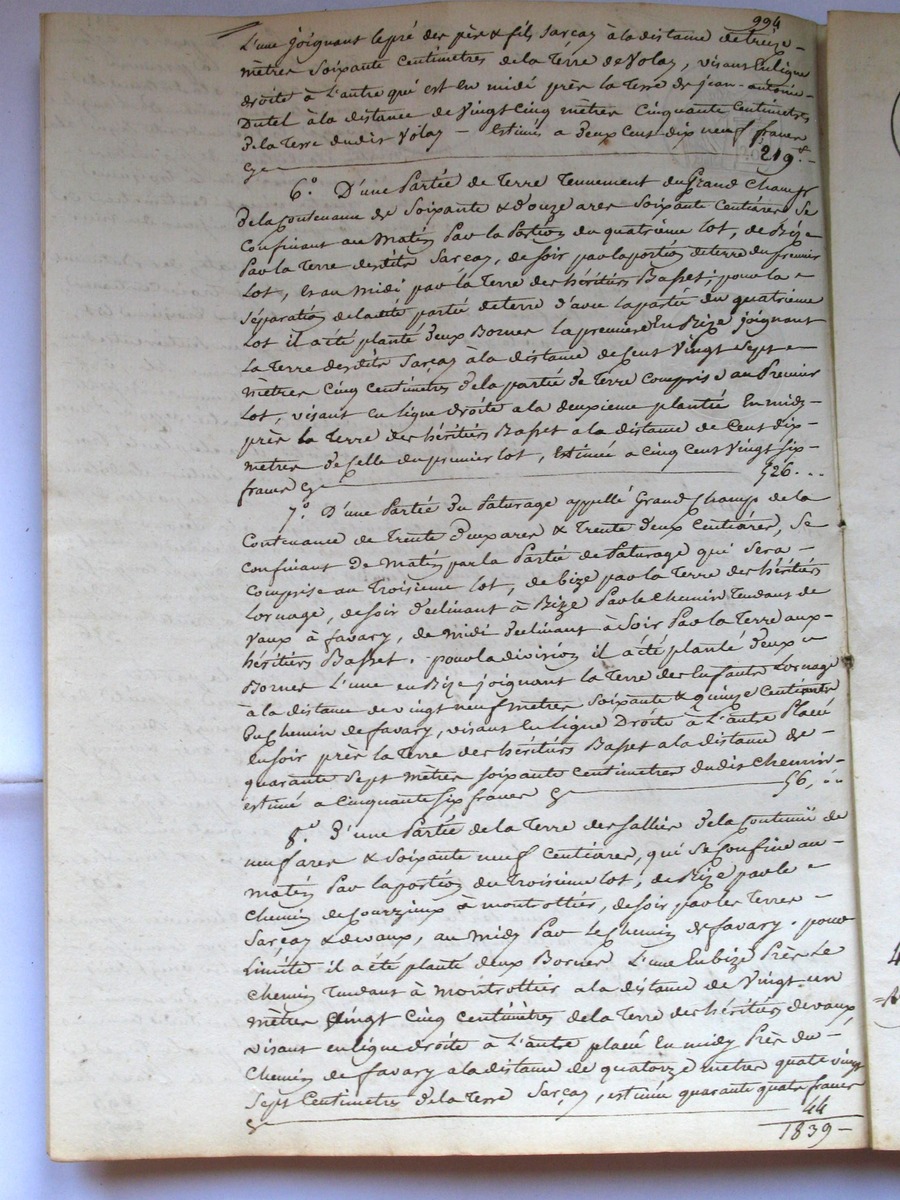 994
L'une joignant le pré des père & fils Sarcay à la distance de treize
mètres Soixante Centimètres de la Terre de Volay, visant En ligne
droite à L'autre qui est en midi près la Terre de jean-antoine
Dutel à la distance de Vingt Cinq mètres Cinquante Centimetres
de la Terre dudit Volay – Estimée a deux Cent dix neuf francs
219.
6.° D'une Partie de Terre Tennement du Grand Champ
de la Contenance de Soixante & douze ares Soixante Centiares Se
Confinant au Matin Par la Portion du quatrième Lot, de Bize
Par la Terre desdits Sarcay, de soir par la portion de terre du premier
Lot, Et au Midi par la Terre des héritiers Basset; pour la
Séparation de ladite partie de terre d'avec la partie du quatrième
Lot il a été planté deux Bornes la première En Bize joignant
La Terre desdits Sarcay à la distance de Cent Vingt Sept
mètres Cinq Centimètres de la partie de Terre Comprise au Premier
Lot, visant en Ligne droite a la deuxieme plantée En midy
près la Terre des héritiers Basset a la distance de Cent dix
metres de Celle du premier lot, Estimée a cinq Cent Vingt six
francs
526.
7.° D'une Partie du Paturage appellé Grand Champ de la
Contenance de Trente deux ares & Trente deux Centiares, Se
confinant De Matin par la Partie de Paturage qui sera
Comprise au Troisieme lot, de bize par la Terre des héritiers
Lornage, de soir déclinant à Bize Par le Chemin Tendant de
Vaux à favary, de midi déclinant à Soir Par la Terre aux
héritiers Basset. pour la division il a été planté deux
Bornes L'une en Bize joignant la Terre des Enfants Lornage
à la distance de vingt neuf metres Soixante & quinze Centimetres
Du Chemin de favary, visant En ligne Droite à L'autre Placée
En soir près la Terre des héritiers Basset a la distance de
quarante Sept mètres soixante Centimetres dudit Chemin
estimé a Cinquante Six francs
56,
8.° D'une Partie de la Terre des Salliés de la Contenue de
neuf ares & Soixante neuf Centiares, qui Se Confine au
matin Par la portion du troisieme lot, de Bize par le
Chemin de Courzieux a montrottier, de soir par les Terres
Sarcay & devaux, au Midy Par le Chemin de favary. pour
Limite il a été planté deux Bornes L'une En bize Près Le
Chemin Tendant à Montrottier a la distance de Vingt un
mètres Vingt Cinq Centimètres de la Terre des héritiers devaux
visant en ligne droite à L'autre placée En midy Près du
Chemin de favary a la distance de quatorze metres quatre vingt
Sept Centimetres de la Terre Sarcay, estimée quarante quatre francs
44
1839